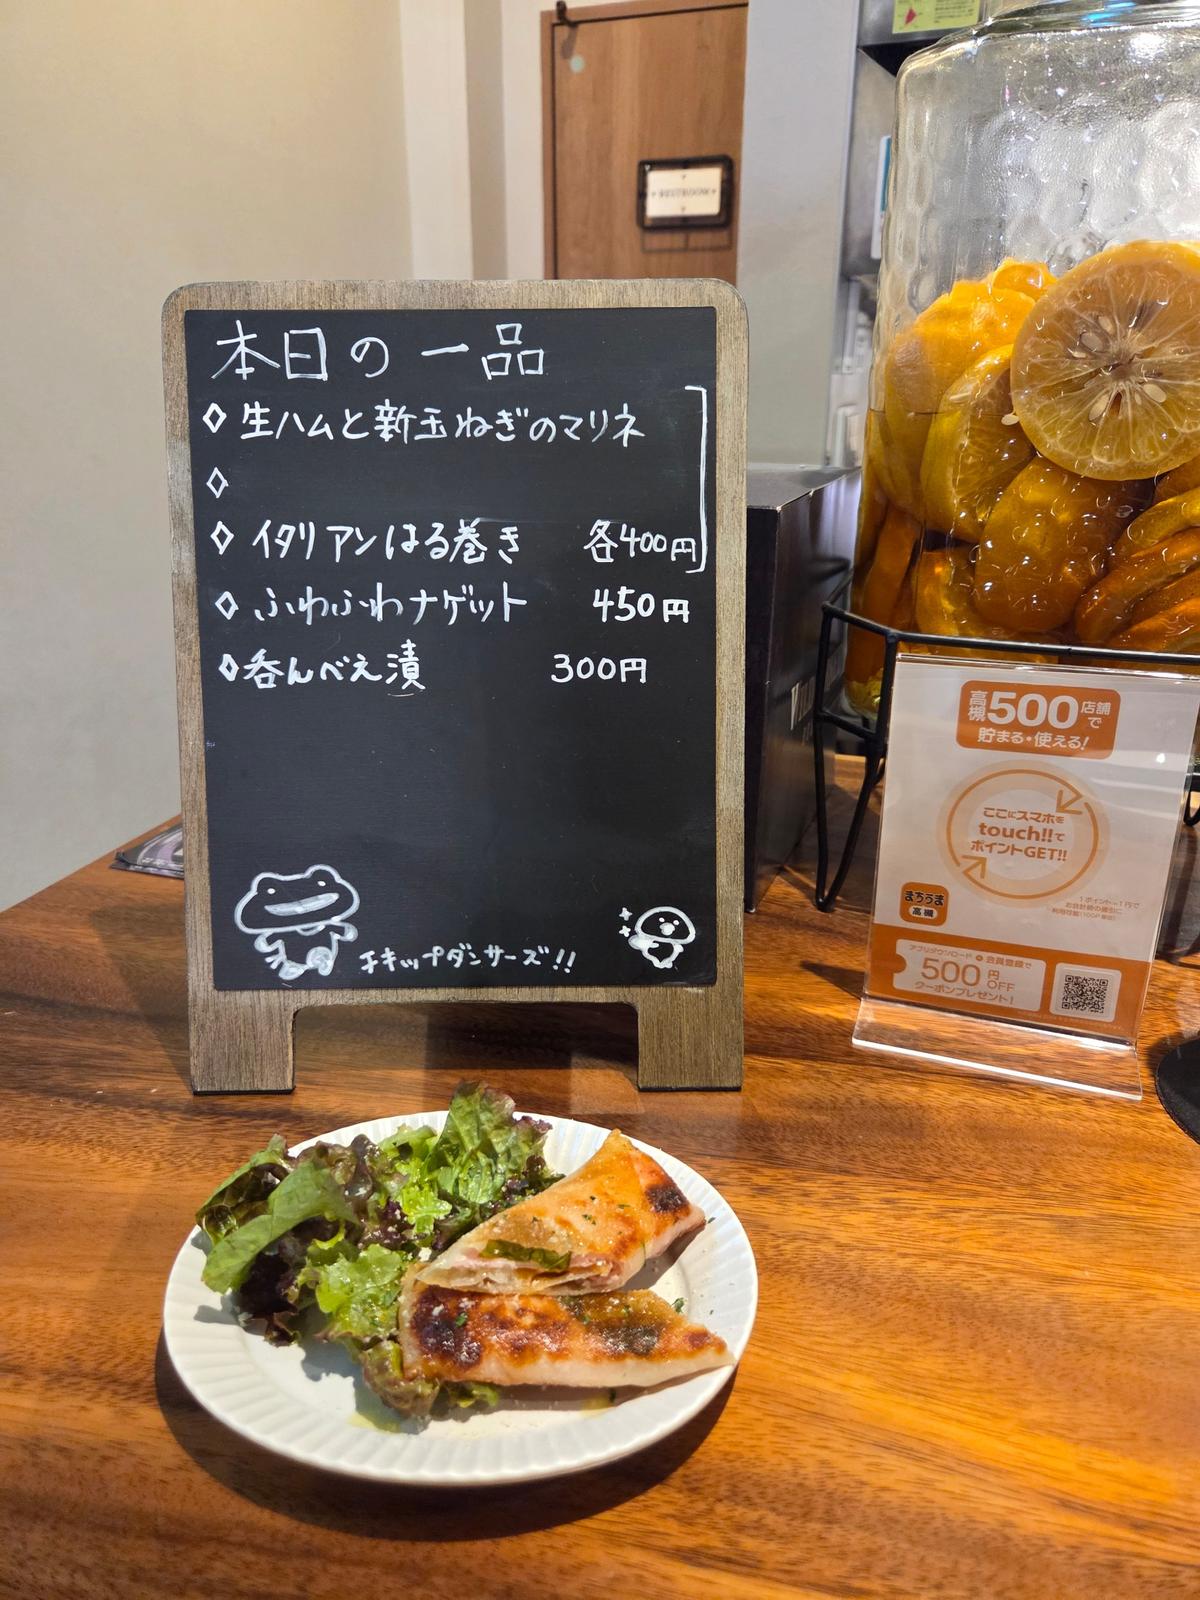 本日の一品
◇生ハムと新玉ねぎのマリネ
◇
◇イタリアンはる巻き 各400円
◇ふわふわナゲット 450円
◇呑んべえ漬 300円
チキップダンサーズ!!
RESTROOM
高槻500店舗で
貯まる・使える!
ここにスマホを
touch!!で
ポイントGET!!
まちうま
高槻
1ポイント=1円で
お会計時の値引に
アプリダウンロード+会員登録で
500円OFF
クーポンプレゼント!